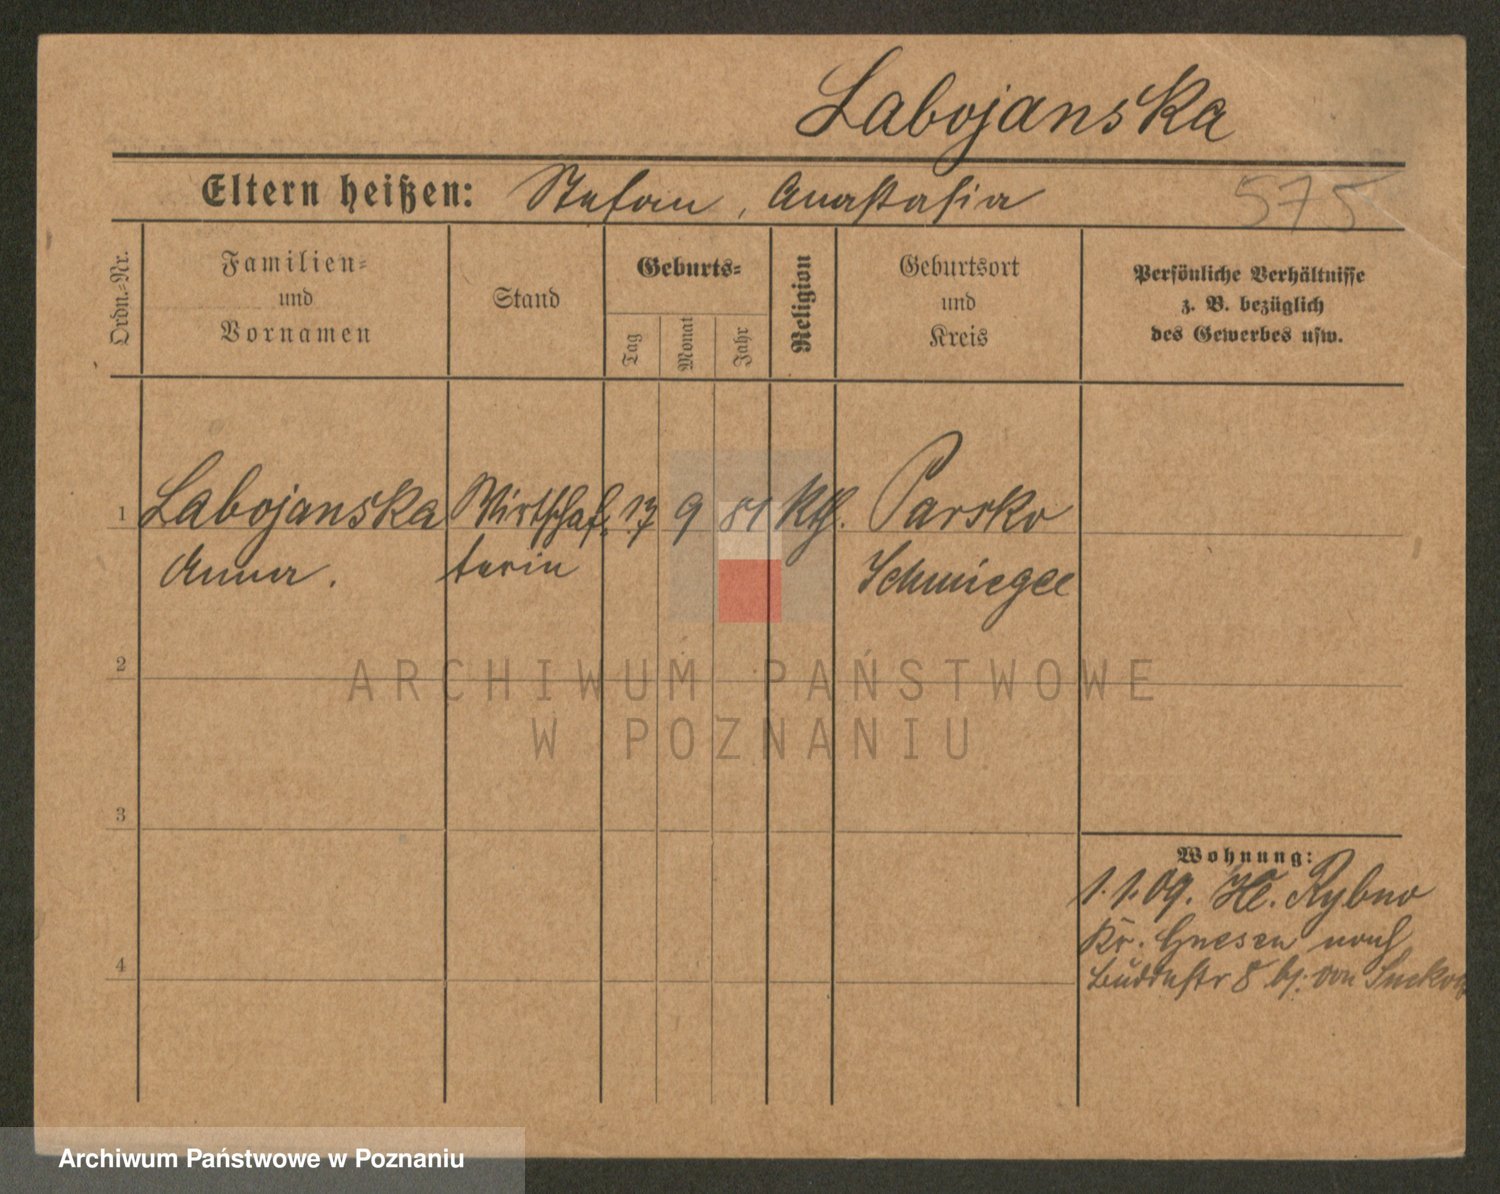 Labojanska
Eltern heißen: Stefan, Anastasia
575
Ordn.-Nr.
Familien-
und
Vornamen
Stand
Geburts-
Tag
Monat
Jahr
Religion
Geburtsort
und
Kreis
Persönliche Verhältnisse
z. B. bezüglich
des Gewerbes usw.
1 Labojanska Wirtschaf- 17 9 81 Kth. Parsko
Anna. terin Schmiegel
2
ARCHIWUM PAŃSTWOWE
W POZNANIU
3
Wohnung:
1.1.09. Kl. Rybno
Kr. Gnesen nach
4
Buddestr 8 bj. von
Archiwum Państwowe w Poznaniu